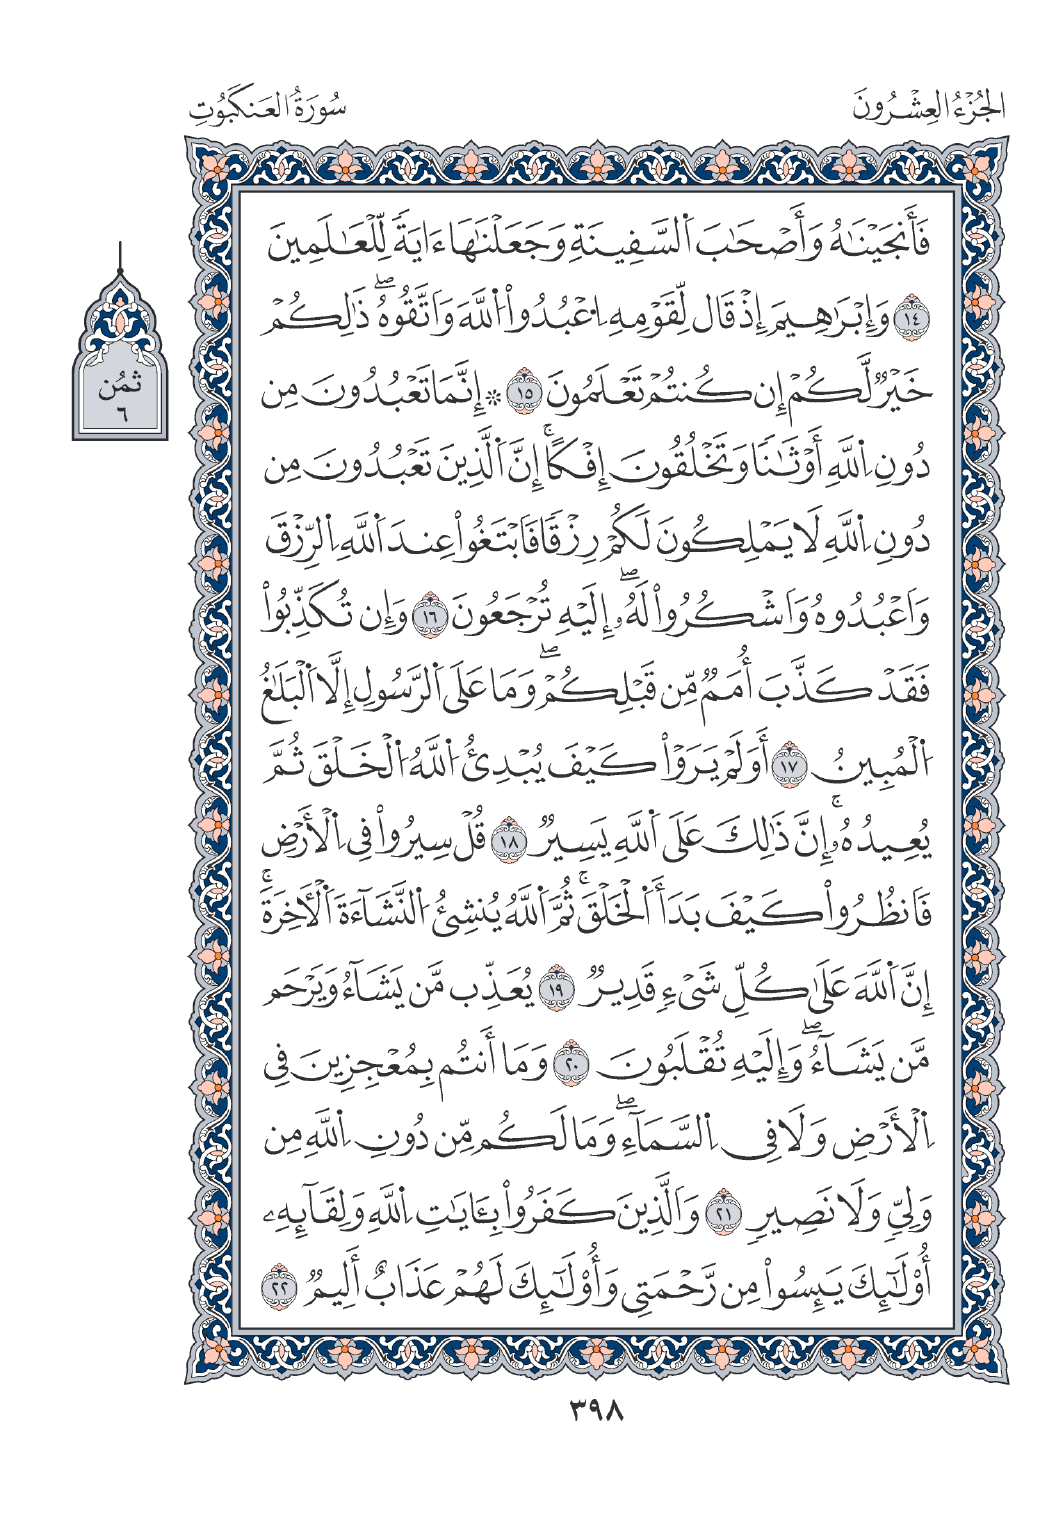 الجُزْءُ العِشْرُونَ
سُورَةُ العَنكَبُوتِ
فَأَنجَيْنَٰهُ وَأَصْحَٰبَ اَ۬لسَّفِينَةِ وَجَعَلْنَٰهَا ءَايَةٗ لِّلْعَٰلَمِينَ
١٤ وَإِبْرَٰهِيمَ إِذْ قَالَ لِّقَوْمِهِ اِ۟عْبُدُواْ اُ۬للَّهَ وَاَتَّقُوهُۖ ذَٰلِكُمْ
خَيْرٞ لَّكُمْ إِن كُنتُمْ تَعْلَمُونَ ١٥ ۞ إِنَّمَا تَعْبُدُونَ مِن
دُونِ اِ۬للَّهِ أَوْثَٰنٗا وَتَخْلُقُونَ إِفْكًاۚ إِنَّ اَ۬لَّذِينَ تَعْبُدُونَ مِن
دُونِ اِ۬للَّهِ لَا يَمْلِكُونَ لَكُمْ رِزْقٗا فَاَبْتَغُواْ عِندَ اَ۬للَّهِ اِ۬لرِّزْقَ
وَاَعْبُدُوهُ وَاَشْكُرُواْ لَهُۥۖ إِلَيْهِ تُرْجَعُونَ ١٦ وَإِن تُكَذِّبُواْ
فَقَدْ كَذَّبَ أُمَمٞ مِّن قَبْلِكُمْۖ وَمَا عَلَى اَ۬لرَّسُولِ إِلَّا اَ۬لْبَلَٰغُ
اُ۬لْمُبِينُ ١٧ أَوَلَمْ يَرَوْاْ كَيْفَ يُبْدِئُ اُ۬للَّهُ اُ۬لْخَلْقَ ثُمَّ
يُعِيدُهُۥۚ إِنَّ ذَٰلِكَ عَلَى اَ۬للَّهِ يَسِيرٞ ١٨ قُلْ سِيرُواْ فِي اِ۬لْأَرْضِ
فَاَنظُرُواْ كَيْفَ بَدَأَ اَ۬لْخَلْقَۚ ثُمَّ اَ۬للَّهُ يُنشِئُ اُ۬لنَّشَآءَةَ اَ۬لْأٓخِرَةَۚ
إِنَّ اَ۬للَّهَ عَلَىٰ كُلِّ شَيْءٖ قَدِيرٞ ١٩ يُعَذِّب مَّن يَشَآءُ وَيَرْحَم
مَّن يَشَآءُۖ وَإِلَيْهِ تُقْلَبُونَ ٢٠ وَمَا أَنتُم بِمُعْجِزِينَ فِي
اِ۬لْأَرْضِ وَلَا فِي اِ۬لسَّمَآءِۖ وَمَا لَكُم مِّن دُونِ اِ۬للَّهِ مِن
وَلِيّٖ وَلَا نَصِيرٖ ٢١ وَاَلَّذِينَ كَفَرُواْ بِـَٔايَٰتِ اِ۬للَّهِ وَلِقَآئِهِۦ
أُوْلَٰٓئِكَ يَئِسُواْ مِن رَّحْمَتِي وَأُوْلَٰٓئِكَ لَهُمْ عَذَابٌ أَلِيمٞ ٢٢
ثُمُن
٦
٣٩٨